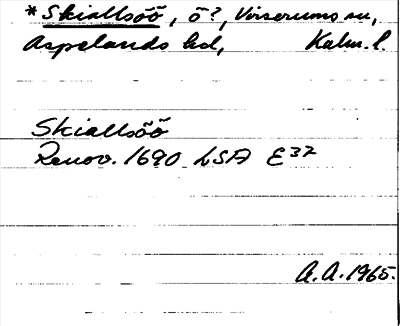 * Skiallsöö, ö?, Virserums sn,
Aspelands hd, Kalm. l.
Skiallsöö
Renov. 1690 LSA E³²
A.A. 1965.